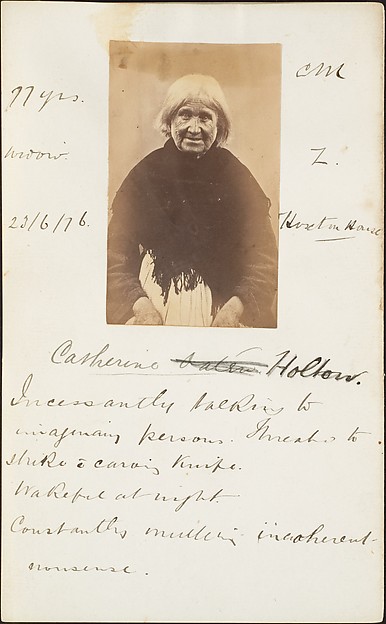 CM
77 yrs.
widow.
Z.
23/6/76.
Hoxton House
Catherine Holton.
Incessantly talking to
imaginary persons. Threatens to
strike c̄ carving knife.
Wakeful at night.
Constantly muttering incoherent
nonsense.